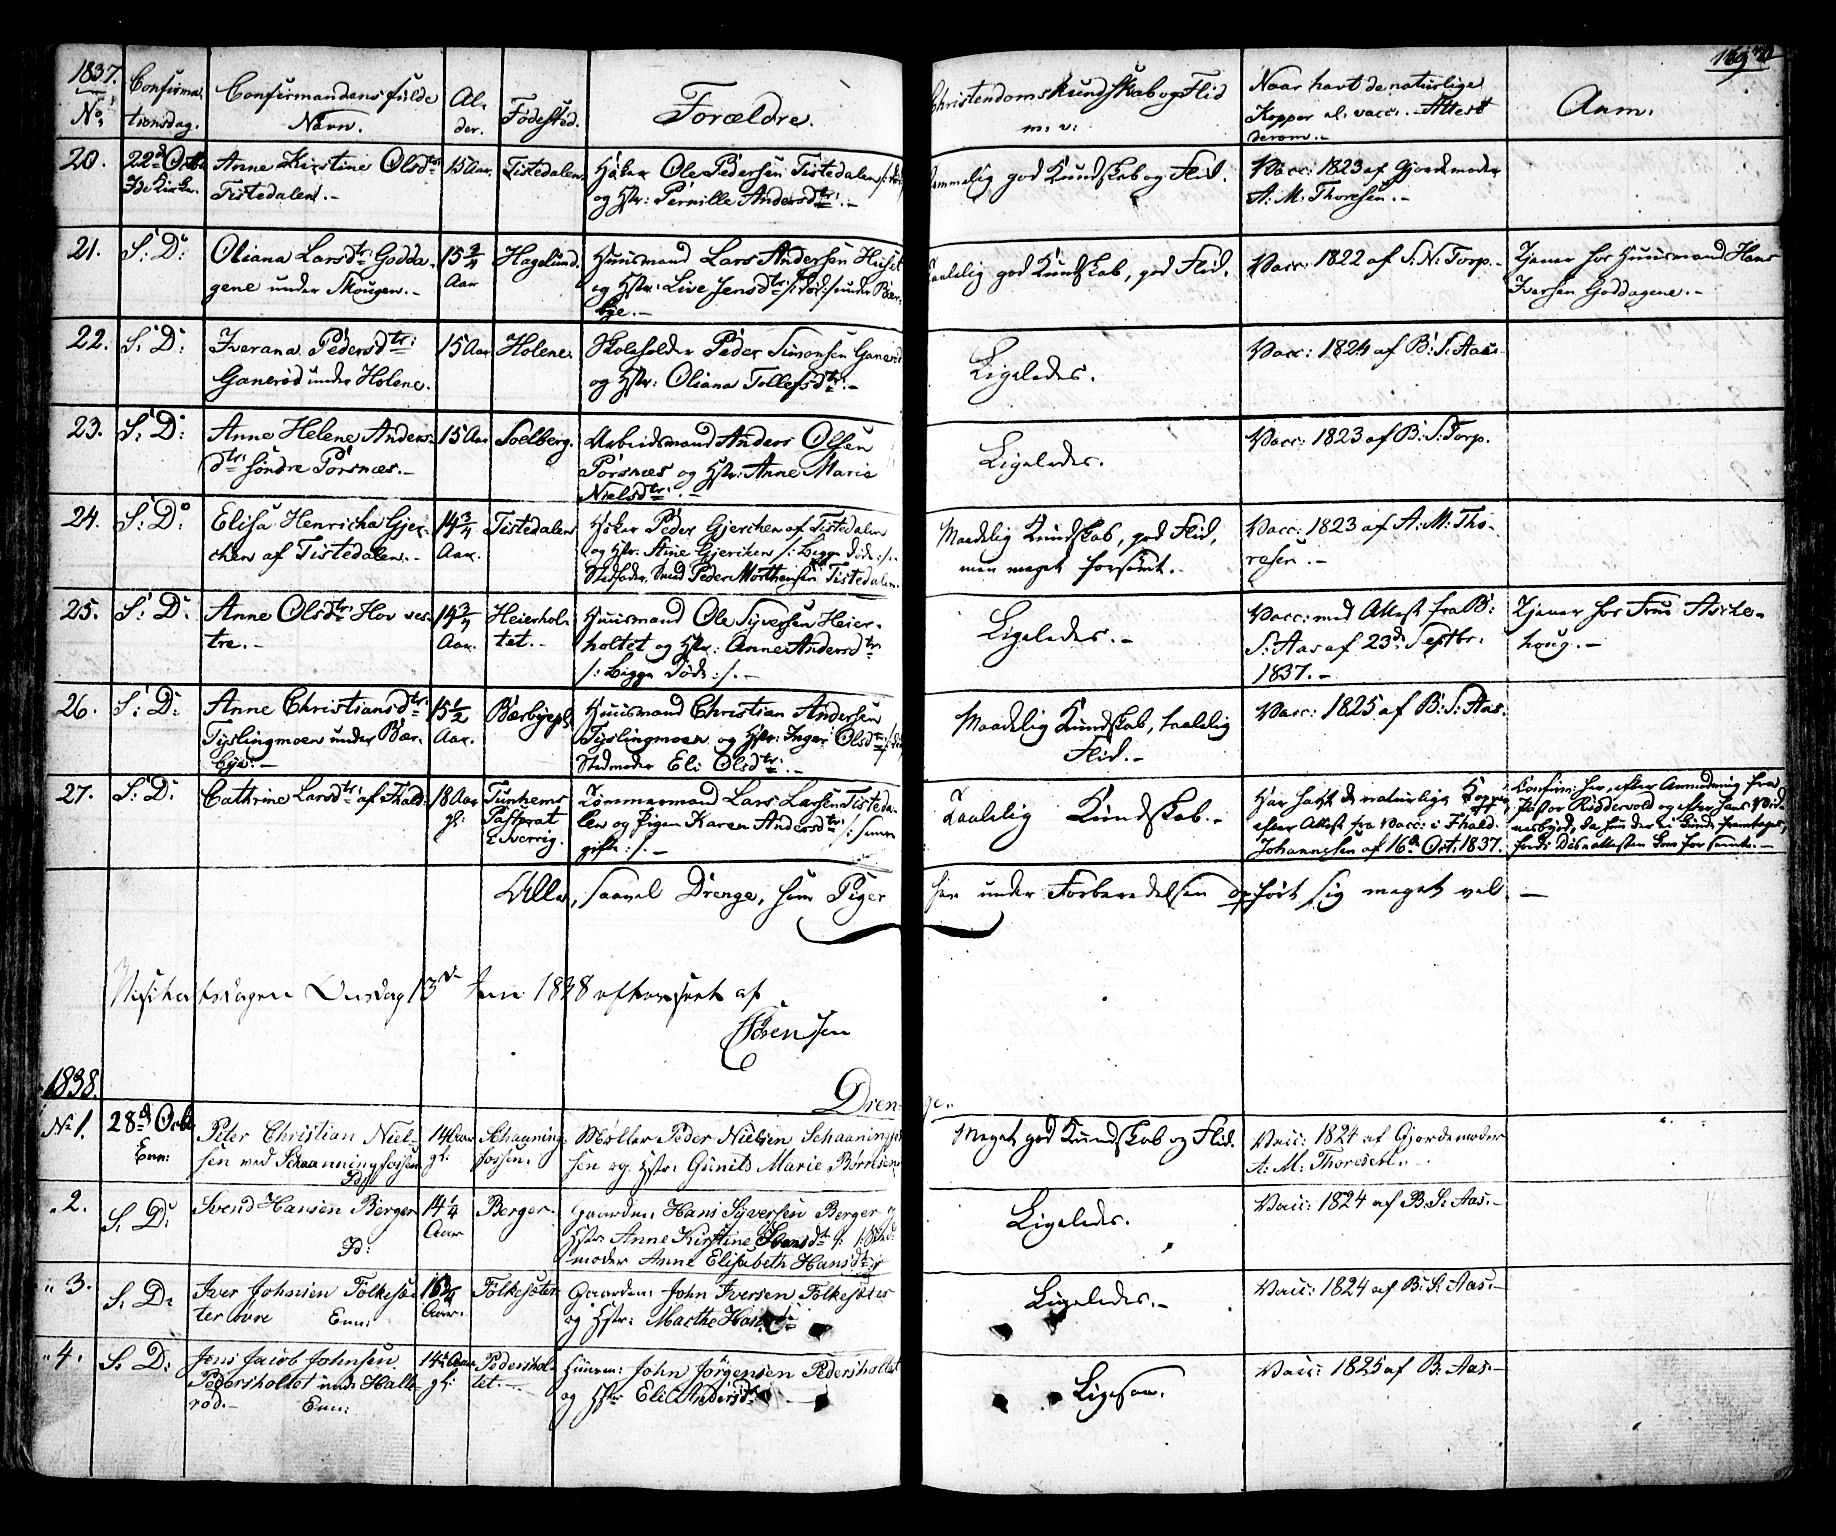 1837.
No:
Confirma-
tionsdag.
Confirmandens fulde
Navn.
Al-
der.
Fødested.
Forældre.
Christendoms Kundskab og Flid
m. v:
Naar havt de naturlige
Kopper el. vacc: - Attest
derom.-
Anm.
169
20.
22d Octbr
Ide Kirke.
Anne Kirstine Olsdtr:
Tistedalen.-
15 Aar.
Tistedalen.
Høker Ole Pedersen Tistedalen
og Hstr: Pernille Andersdtr:-
Temmelig god Kundskab og Flid.
Vacc: 1823 af Gjordemoder
A: M: Thoresen.-
21.
S: D:
Oliana Larsdtr: Godda-
gene under Skougen.-
15 2/4
Aar
Hagelund.
Huusmand Lars Andersen Huset
og Hstr: Live Jensdtr: /: død :/ under Bær-
bye.-
Taalelig god Kundskab, god Flid.
Vacc: 1822 af S: N: Torp.-
Tjener hos Huusmand Hans
Iversen Goddagene.-
22.
S: D:
Iverana Pedersdtr:
Ganerød under Holene.
15 Aar
Holene.
Skoleholder Peder Simonsen Ganerød
og Hstr: Oliana Tollefsdtr:-
Ligeledes.
Vacc: 1824 af B: S: Aas.-
23.
S: D:
Anne Helene Anders-
dtr: søndre Porsnæs.-
15 Aar
Soelberg.
Arbeidsmand Anders Olsen
Porsnæs og Hstr: Anne Marie
Nielsdtr:-
Ligeledes.
Vacc: 1823 af B: S: Torp.
24.
S: D:
Elisa Henricha Gjer-
chen af Tistedalen.-
14 3/4
Aar.
Tistedalen
Høker Peder Gjerchen af Tistedalen
og Hstr: Stine Gjerchen /: Begge døde :/.
Stedfader, Smed Peder Morthensen Tistedalen.
Maadelig Kundskab, god Flid,
men meget forsømt.-
Vacc: 1823 af A: M: Tho-
resen.-
25.
S: D:
Anne Olsdtr: Hov ves-
tre.-
14 3/4
Aar.
Heierhol-
tet.-
Huusmand Ole Syversen Heier-
holtet og Hstr: Anne Andersdtr:
/: Begge Døde :/.-
Ligeledes.-
Vacc: med Attest fra B:
S: Aas af 23d Septbr:
1837.-
Tjener hos Frue Aske-
houg.-
26.
S: D:
Anne Christiansdtr:
Tyslingmoen under Bær-
bye.-
15 1/2
Aar.
Bærbyepl.
Huusmand Christian Andersen
Tyslingmoen og Hstr: Inger Olsdtr:
Stedmoder Eli Olsdtr:-
Maadelig Kundskab, taalelig
Flid.-
Vacc: 1825 af B: S: Aas.
27.
S: D:
Cathrine Larsdtr: af Fhald.
18 Aar
gl:
Tunhems
Pastorat
i Sverrig.
Tømmermand Lars Larsen Tisteda-
len og Pigen Karen Andersdtr:
gifte :/.-
Taalelig Kundskab.-
Har havt de naturlige Kopper
efter Attest fra Vacc: i Fhald.
Johannesen af 16d Oct: 1837.
Confirm: her efter Anmodning fra
Pastor Riddervold og efter hans
Alle, saavel Drenge, som Piger
har under Forberedelsen opført sig meget vel.-
Visitatsdagen Onsdag 13de Juni 1838 efterseet af
Sørensen
1838.
Drenge.
No 1.
28d Octbr
Enn:
Peter Christian Niel-
sen ved Schaanningfossen
Id:
14 Aar
gl:
Schaanning-
fossen.
Møller Peder Nielsen Schaaningfos-
sen og Hstr: Gunild Marie Børnsen
Meget god Kundskab og Flid.
Vacc: 1824 af Gjordemoder
A: M: Thoresen.-
" 2.
S: D:
Svend Hansen Berger
Id:
14 1/4
Aar
Berger.
Gaardm: Hans Syversen Berger og
Hstr: Anne Kirstine
moder Anne Elisabeth Hansdtr:
Ligeledes.
Vacc: 1824 af B: S: Aas.-
" 3.
S: D:
Iver Johnsen Folkesæ-
ter øvre Enn:
16 3/4
Aar.
Folkesæter
Gaardm: John Iversen Folkesæter
og Hstr: Marthe
Ligeledes.-
Vacc: 1824 af B: S: Aas.-
" 4.
S: D:
Jens Jacob Johnsen
Pedersholtet und: Halle-
rød.- Enn:
14 Aar
gl:
Pedershol-
tet.-
Huusm: John Jørgensen Pedersholtet
og Hstr Eli Andersdtr
Ligesaa.
Vacc: 1825 af B: Aas.-